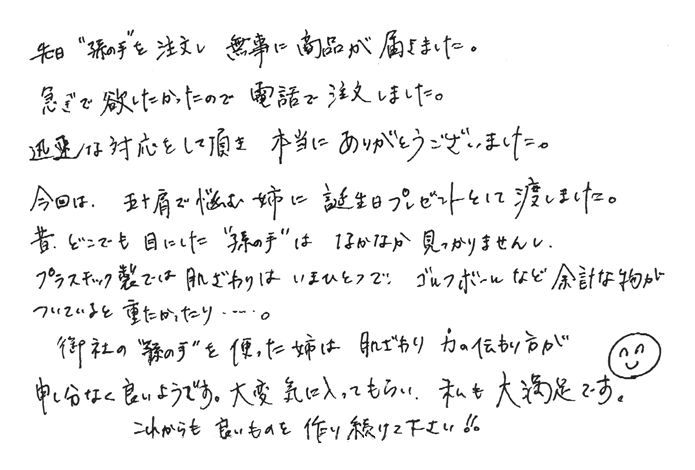 先日 "孫の手"を 注文し 無事に 商品が 届きました。
急ぎで 欲しかったので 電話で 注文しました。
迅速な 対応をして頂き 本当に ありがとうございました。
今回は、五十肩で悩む 姉に 誕生日プレゼントとして 渡しました。
昔、どこでも 目にした "孫の手"は なかなか 見つかりませんし、
プラスチック製では 肌ざわりは いまひとつで、ゴルフボールなど 余計な物が
ついていると 重たかったり……。
御社の "孫の手"を 使った 姉は 肌ざわり 力の伝わり方が
申し分なく 良いようです。大変 気に入ってもらい、私も 大満足です。
これからも 良いものを 作り続けて下さい!!